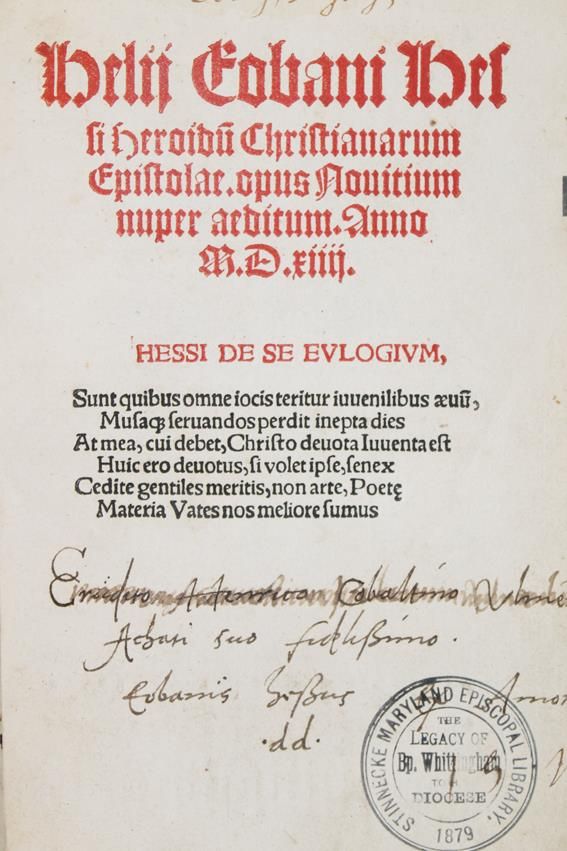 Helij Eobani Hes
si Heroidū Christianarum
Epistolae. opus Nouitium
nuper aeditum. Anno
M.D.xiiij.
HESSI DE SE EVLOGIVM,
Sunt quibus omne iocis teritur iuuenilibus æuū,
Musaqꝫ seruandos perdit inepta dies
At mea, cui debet, Christo deuota Iuuenta est
Huic ero deuotus, si volet ipse, senex
Cedite gentiles meritis, non arte, Poetę
Materia Vates nos meliore sumus
suo fidelißimo.
Eobanus Heßus
.dd.
STINNECKE MARYLAND EPISCOPAL LIBRARY,
THE
LEGACY OF
Bp. Whittingham
TO
DIOCESE
1879